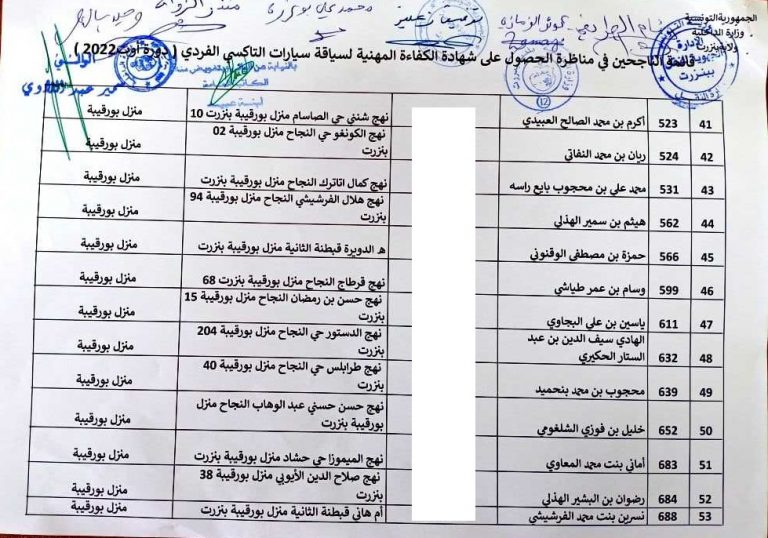 الجمهورية التونسية
وزارة الداخلية
ولاية بنزرت
قائمة الناجحين في مناظرة الحصول على شهادة الكفاءة المهنية لسياقة سيارات التاكسي الفردي ( دورة أوت 2022 )
41 523 أكرم بن محمد الصالح العبيدي نهج شنني حي الصاسام منزل بورقيبة بنزرت 10 منزل بورقيبة
42 524 ريان بن محمد النفاتي نهج الكونغو حي النجاح منزل بورقيبة 02
بنزرت منزل بورقيبة
43 531 محمد علي بن محجوب بايع راسه نهج كمال اتاترك النجاح منزل بورقيبة بنزرت منزل بورقيبة
44 562 هيثم بن سمير الهذلي نهج هلال الفرشيشي النجاح منزل بورقيبة 94
بنزرت منزل بورقيبة
45 566 حمزة بن مصطفى الوقنوني ه الدويرة قبطنة الثانية منزل بورقيبة بنزرت منزل بورقيبة
46 599 وسام بن عمر طياشي نهج قرطاج النجاح منزل بورقيبة بنزرت 68 منزل بورقيبة
47 611 ياسين بن علي البجاوي نهج حسن بن رمضان النجاح منزل بورقيبة 15
بنزرت منزل بورقيبة
48 632 الهادي سيف الدين بن عبد
الستار الحكيري نهج الدستور حي النجاح منزل بورقيبة 204
بنزرت منزل بورقيبة
49 639 محجوب بن محمد بنحميد نهج طرابلس حي النجاح منزل بورقيبة 40
بنزرت منزل بورقيبة
50 652 خليل بن فوزي الشلغومي نهج حسن حسني عبد الوهاب النجاح منزل
بورقيبة بنزرت منزل بورقيبة
51 683 أماني بنت محمد المعاوي نهج الميموزا حي حشاد منزل بورقيبة بنزرت منزل بورقيبة
52 684 رضوان بن البشير الهذلي نهج صلاح الدين الأيوبي منزل بورقيبة 38
بنزرت منزل بورقيبة
53 688 نسرين بنت محمد الفرشيشي أم هاني قبطنة الثانية منزل بورقيبة بنزرت منزل بورقيبة